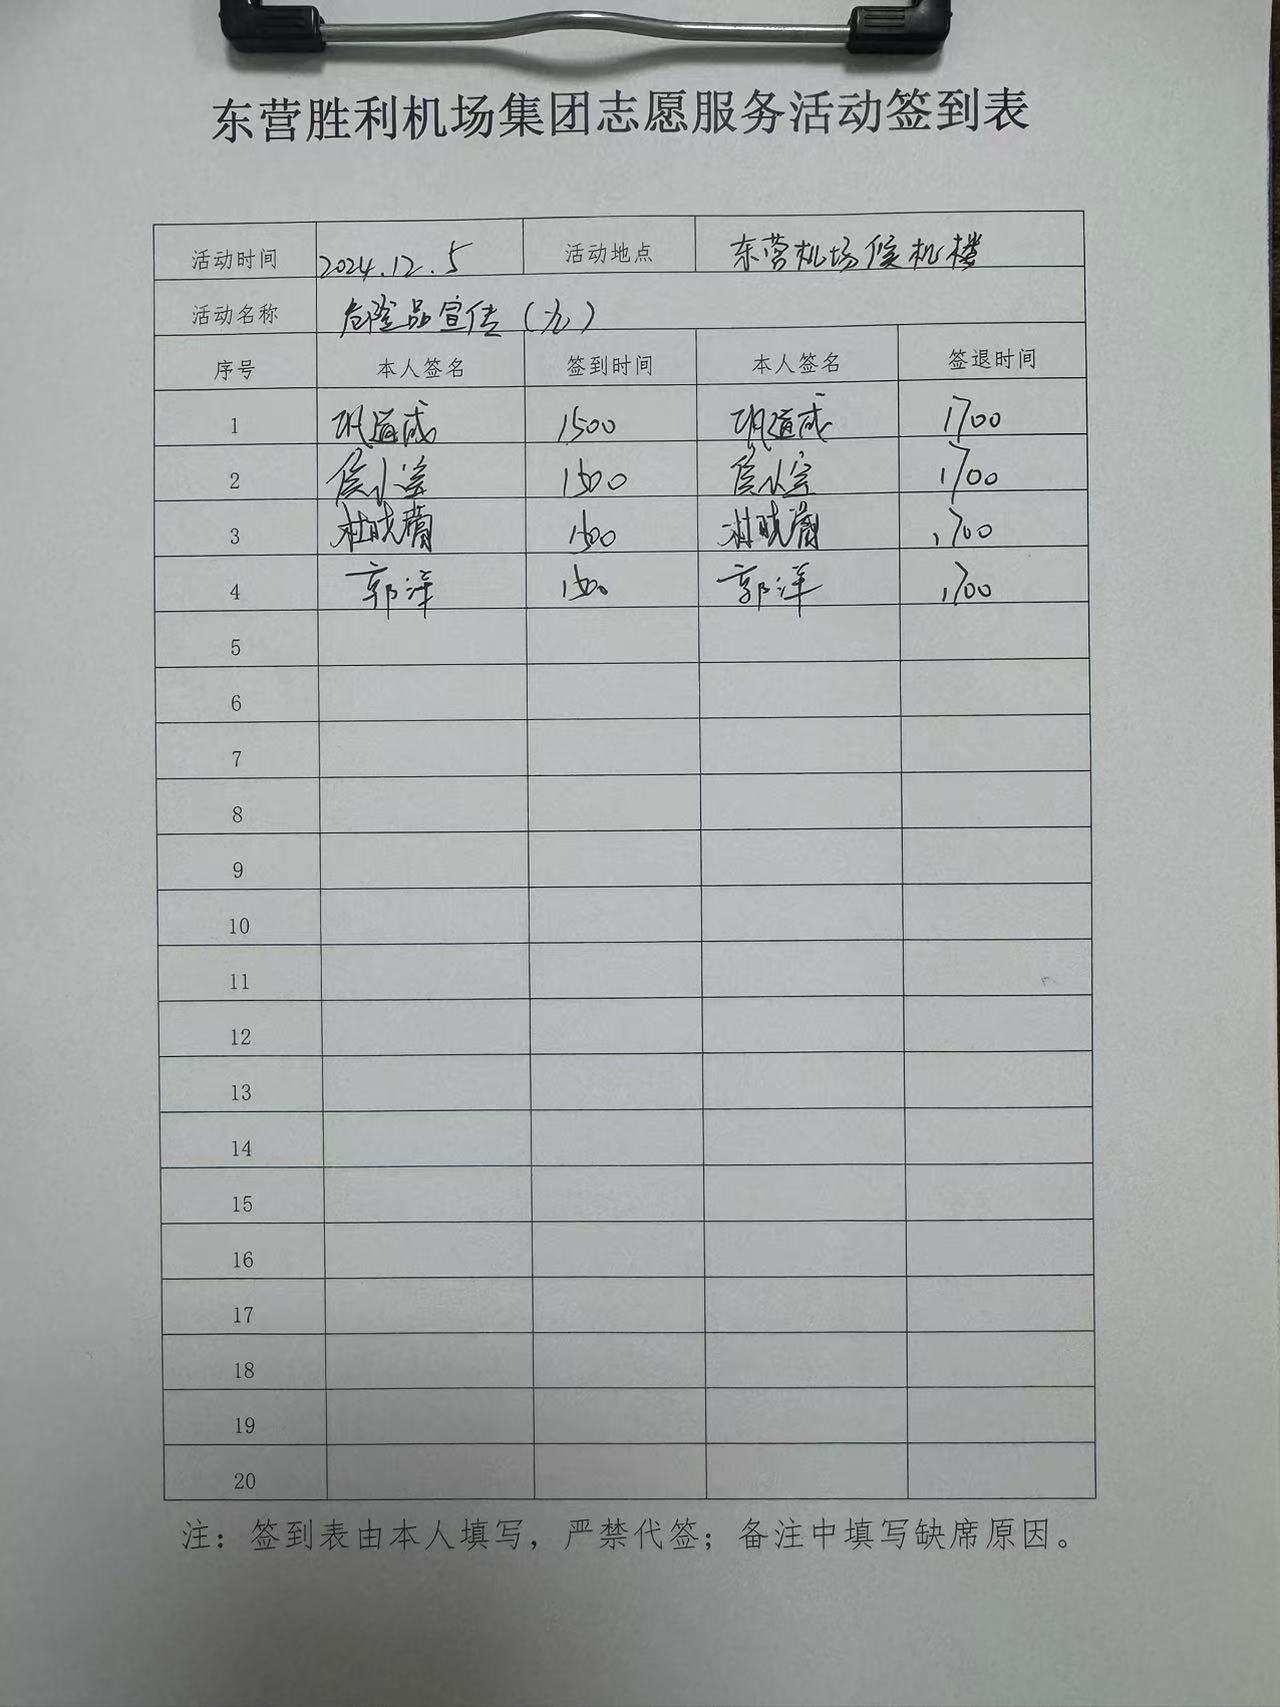 东营胜利机场集团志愿服务活动签到表
活动时间 2024.12.5 活动地点 东营机场候机楼
活动名称 危险品宣传（九）
序号 本人签名 签到时间 本人签名 签退时间
1 巩道成 1500 巩道成 1700
2 1500 1700
3 杜晓蘭 1500 杜晓蘭 1700
4 郭洋 1500 郭洋 1700
5
6
7
8
9
10
11
12
13
14
15
16
17
18
19
20
注：签到表由本人填写，严禁代签；备注中填写缺席原因。